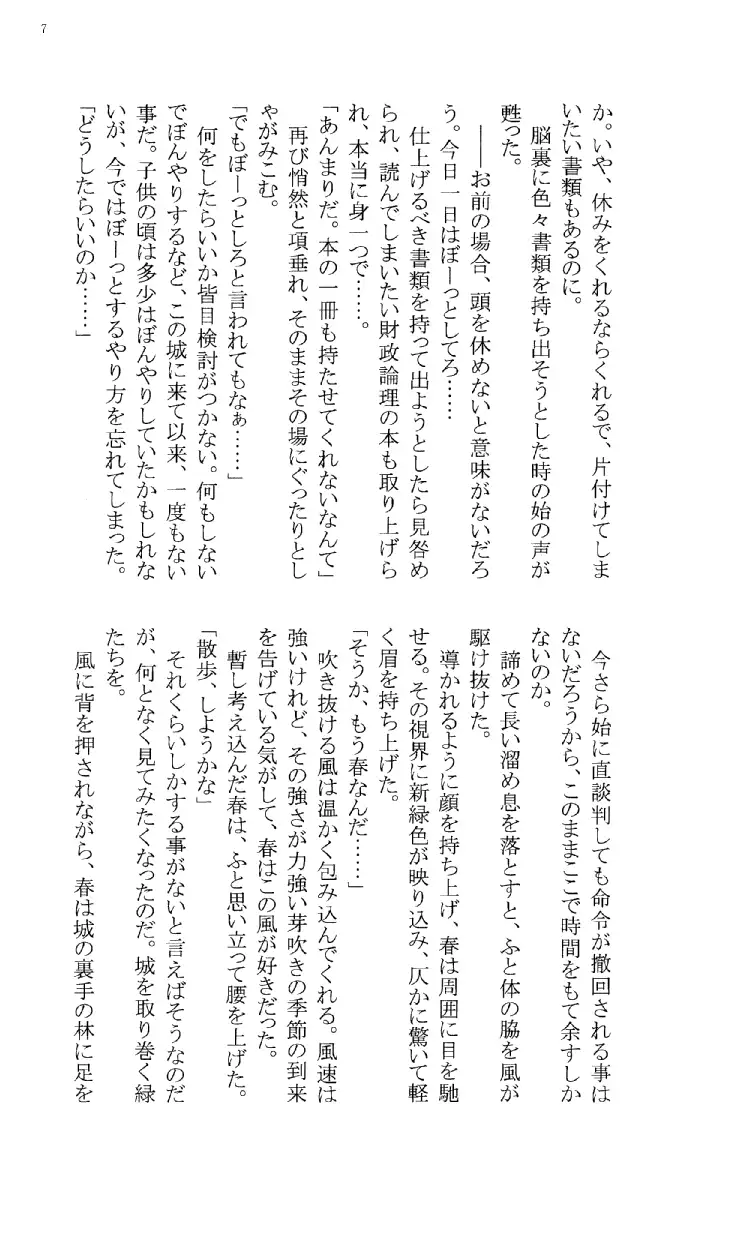 7
か。いや、休みをくれるならくれるで、片付けてしま
いたい書類もあるのに。
脳裏に色々書類を持ち出そうとした時の始の声が
甦った。
――お前の場合、頭を休めないと意味がないだろ
う。今日一日はぼーっとしてろ……
仕上げるべき書類を持って出ようとしたら見咎め
られ、読んでしまいたい財政論理の本も取り上げら
れ、本当に身一つで……。
「あんまりだ。本の一冊も持たせてくれないなんて」
再び悄然と項垂れ、そのままその場にぐったりとし
ゃがみこむ。
「でもぼーっとしろと言われてもなぁ……」
何をしたらいいか皆目検討がつかない。何もしない
でぼんやりするなど、この城に来て以来、一度もない
事だ。子供の頃は多少はぼんやりしていたかもしれな
いが、今ではぼーっとするやり方を忘れてしまった。
「どうしたらいいのか……」
今さら始に直談判しても命令が撤回される事は
ないだろうから、このままここで時間をもて余すしか
ないのか。
諦めて長い溜め息を落とすと、ふと体の脇を風が
駆け抜けた。
導かれるように顔を持ち上げ、春は周囲に目を馳
せる。その視界に新緑色が映り込み、仄かに驚いて軽
く眉を持ち上げた。
「そうか、もう春なんだ……」
吹き抜ける風は温かく包み込んでくれる。風速は
強いけれど、その強さが力強い芽吹きの季節の到来
を告げている気がして、春はこの風が好きだった。
暫し考え込んだ春は、ふと思い立って腰を上げた。
「散歩、しようかな」
それくらいしかする事がないと言えばそうなのだ
が、何となく見てみたくなったのだ。城を取り巻く緑
たちを。
風に背を押されながら、春は城の裏手の林に足を